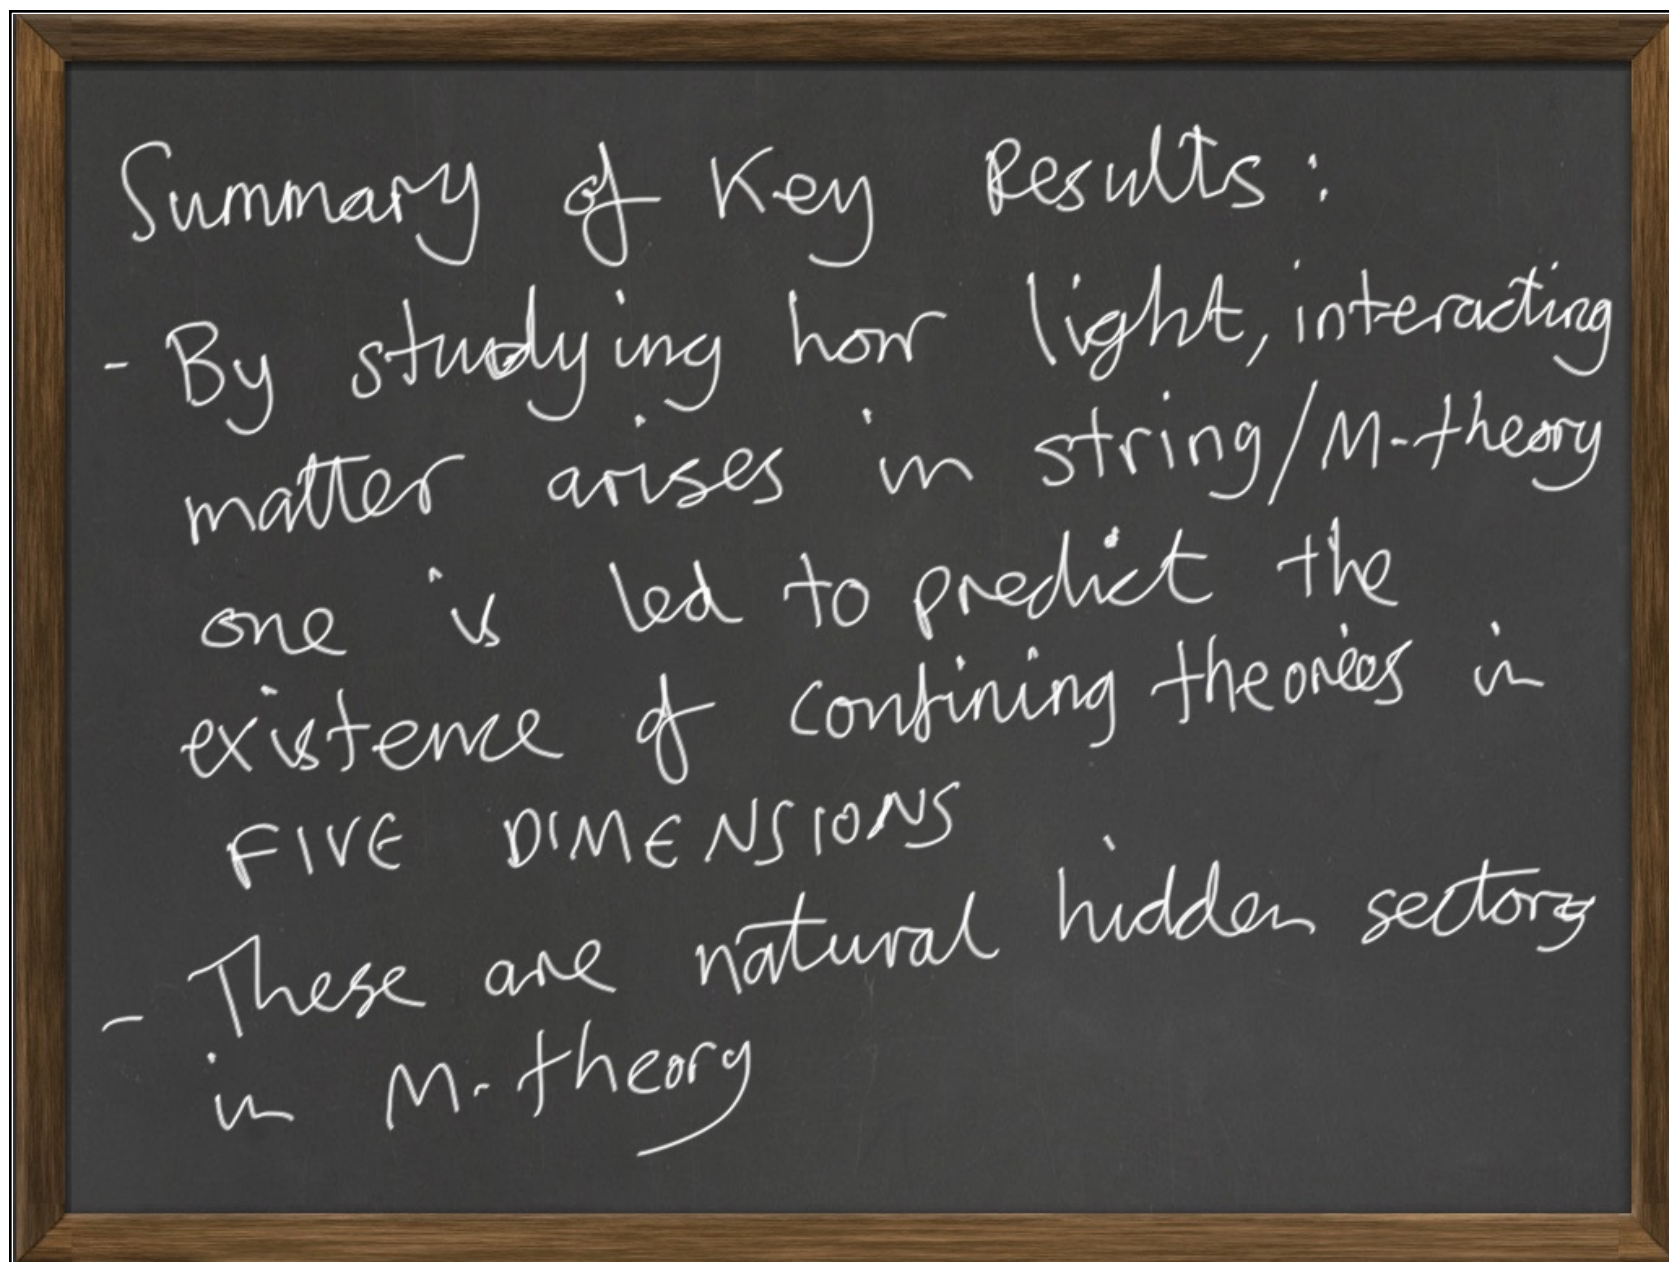 Summary of Key Results:
- By studying how light, interacting
matter arises in string/M-theory
one is led to predict the
existence of confining theories in
FIVE DIMENSIONS
- These are natural hidden sectors
in M-theory